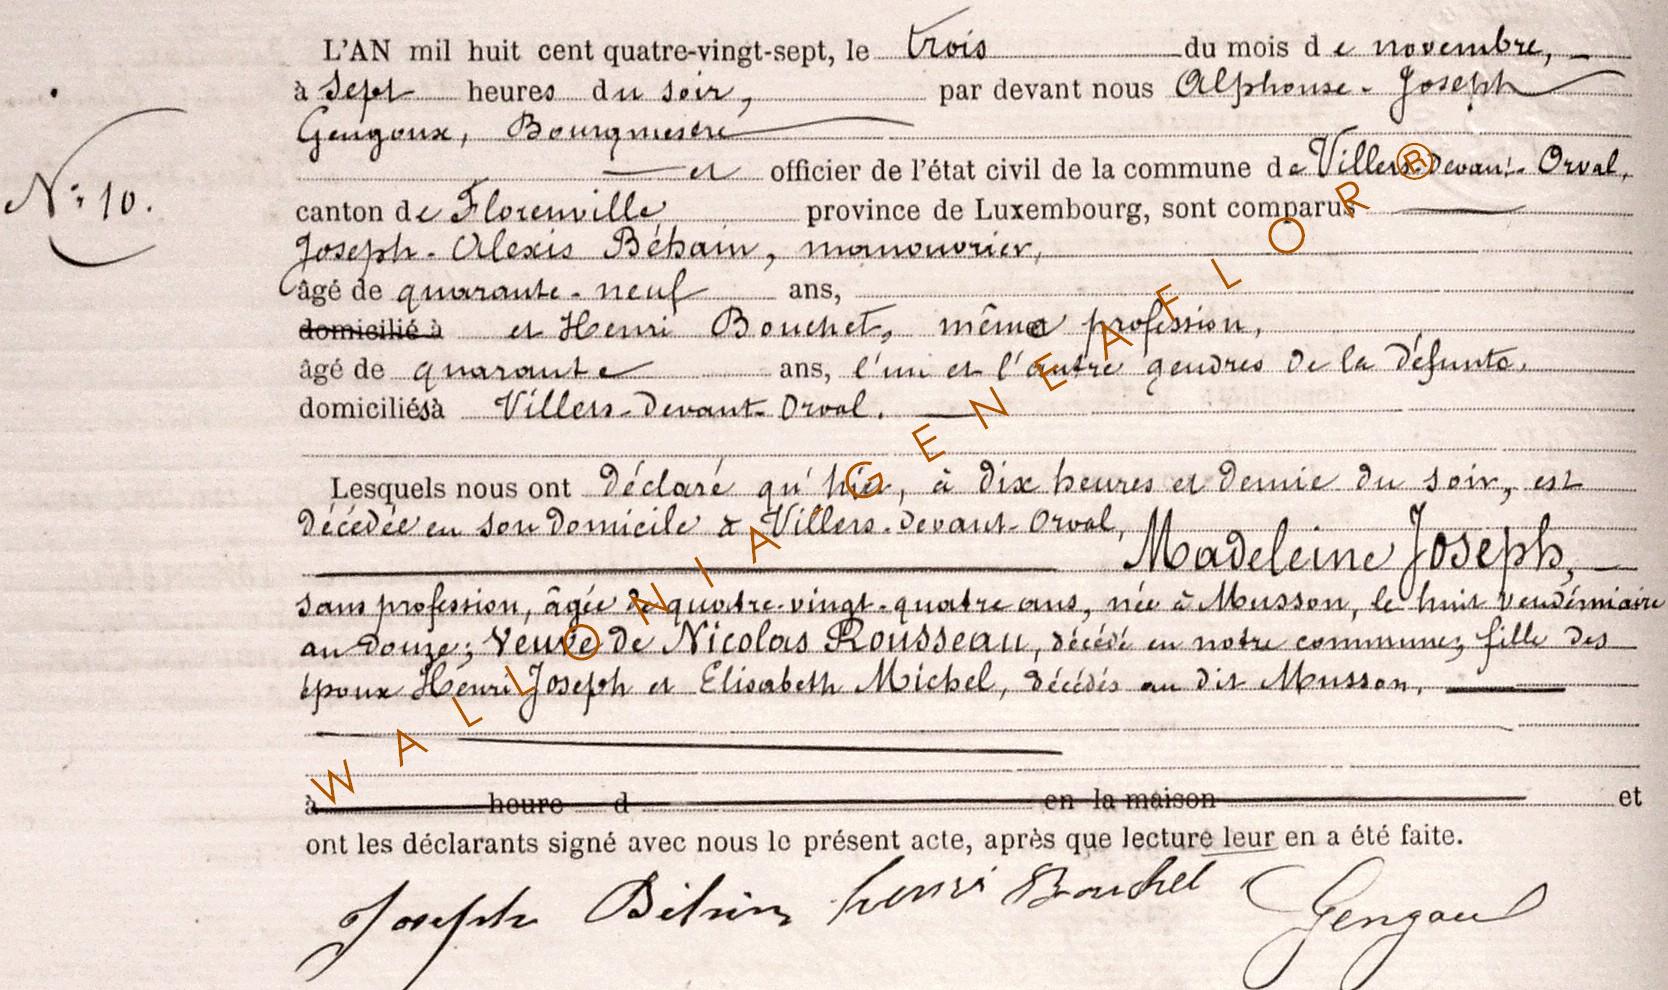 L'AN mil huit cent quatre-vingt-sept, le trois du mois de novembre,
à sept heures du soir, par devant nous Alphonse-Joseph
Gengoux, Bourgmestre
et officier de l'état civil de la commune de Villers-devant-Orval,
N° 10.
canton de Florenville province de Luxembourg, sont comparus
Joseph-Alexis Béhain, manouvrier,
âgé de quarante-neuf ans,
domicilié à et Henri Bouchet, même profession,
âgé de quarante ans, l'un et l'autre gendres de la défunte,
domiciliés à Villers-devant-Orval.
Lesquels nous ont déclaré qu'hier, à dix heures et demie du soir, est
décédée en son domicile à Villers-devant-Orval,
Madeleine Joseph,
sans profession, âgée de quatre-vingt-quatre ans, née à Musson, le huit vendémiaire
an douze; veuve de Nicolas Rousseau, décédé en notre commune; fille des
époux Henri Joseph et Elisabeth Michel, décédés au dit Musson.
à heure d en la maison et
ont les déclarants signé avec nous le présent acte, après que lecture leur en a été faite.
Joseph Béhain henri Bouchet Gengoux
WALLONIA GENEAFLOR®